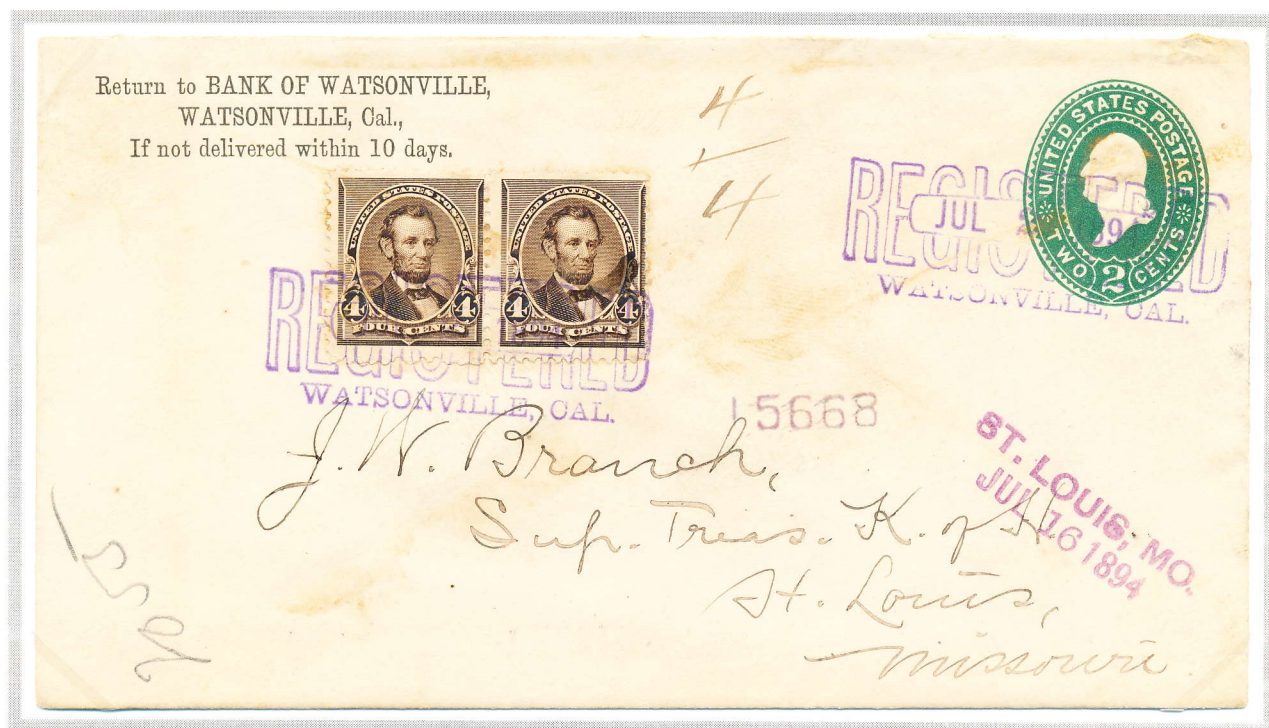 Return to BANK OF WATSONVILLE,
WATSONVILLE, Cal.,
If not delivered within 10 days.
4
4
UNITED STATES POSTAGE
TWO 2 CENTS
REGISTERED
JUL
WATSONVILLE, CAL.
UNITED STATES POSTAGE
4 4
FOUR CENTS
UNITED STATES POSTAGE
4 4
FOUR CENTS
REGISTERED
WATSONVILLE, CAL.
15668
ST. LOUIS, MO.
JUL 16 1894
J. W. Branch,
Sup. Treas. K. of H.
St. Louis,
Missouri